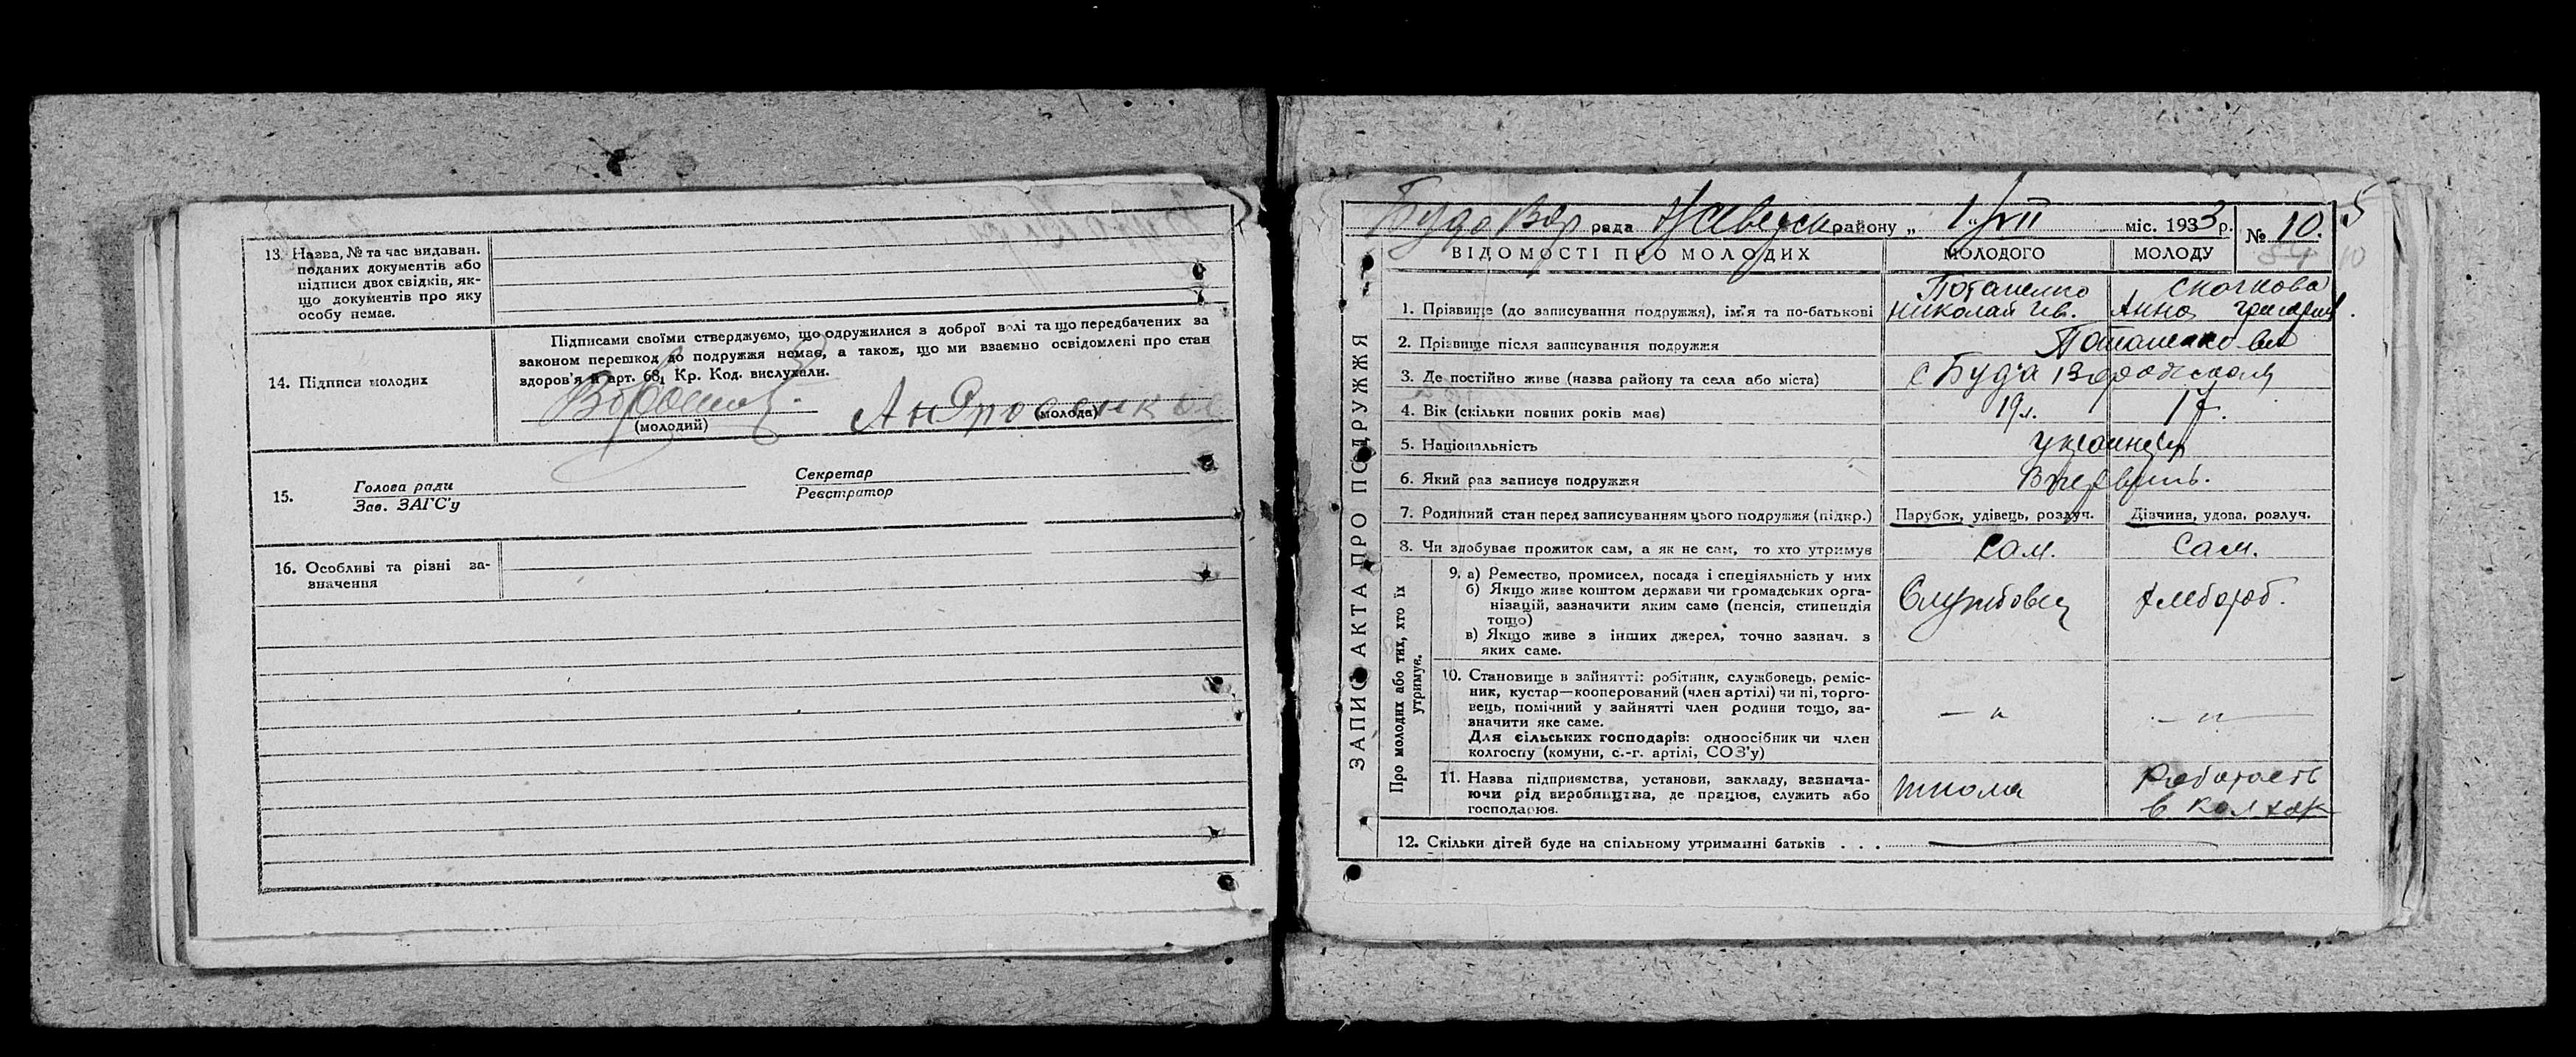 13. Назва, № та час видаван.
поданих документів або
підписи двох свідків, як-
що документів про яку
особу немає.
14. Підписи молодих
Підписами своїми стверджуємо, що одружилися з доброї волі та що передбачених за
законом перешкод до подружжя немає, а також, що ми взаємно освідомлені про стан
здоров'я й арт. 68₁ Кр. Код. вислухали.
(молодий)
(молода)
15. Голова ради
Зав. ЗАГС'у
Секретар
Реєстратор
16. Особливі та різні за-
значення
5
рада району „ 1 " VII міс. 1933 р. № 10.
10
ЗАПИС АКТА ПРО ПОДРУЖЖЯ
ВІДОМОСТІ ПРО МОЛОДИХ МОЛОДОГО МОЛОДУ
1. Прізвище (до записування подружжя), ім'я та по-батькові
Потапенко
Николай Ив.
Скочкова
Анна
2. Прізвище після записування подружжя Потапенко
3. Де постійно живе (назва району та села або міста) с Буда
4. Вік (скільки повних років має) 19 л. 17.
5. Національність украинцы
6. Який раз записує подружжя
7. Родинний стан перед записуванням цього подружжя (підкр.) Парубок, удівець, розлуч. Дівчина, удова, розлуч.
8. Чи здобуває прожиток сам, а як не сам, то хто утримує сам. сам.
Про молодих або тих, хто їх
утримує.
9. а) Ремество, промисел, посада і спеціяльність у них
б) Якщо живе коштом держави чи громадських орга-
нізацій, зазначити яким саме (пенсія, стипендія
тощо)
в) Якщо живе з інших джерел, точно зазнач. з
яких саме.
Службовец
хлебороб.
10. Становище в зайнятті: робітник, службовець, реміс-
ник, кустар—кооперований (член артілі) чи ні, торго-
вець, помічний у зайнятті член родини тощо, за-
значити яке саме.
Для сільських господарів: одноосібник чи член
колгоспу (комуни, с.-г. артілі, СОЗ'у)
— „
— „ —
11. Назва підприємства, установи, закладу, зазнача-
ючи рід виробництва, де працює, служить або
господарює.
школа
Работает
в колхоз
12. Скільки дітей буде на спільному утриманні батьків . . .